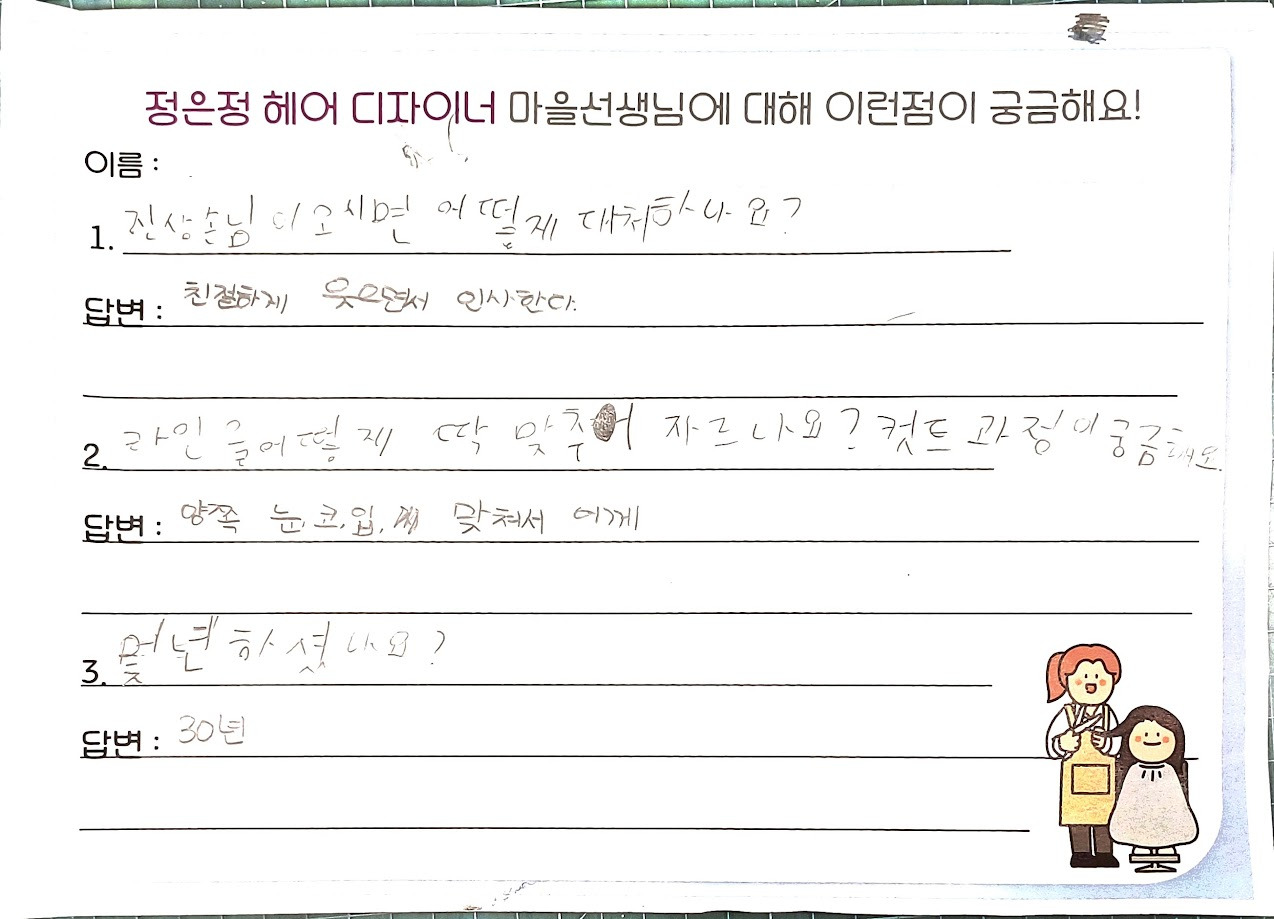 정은정 헤어 디자이너 마을선생님에 대해 이런점이 궁금해요!
이름 :
1. 진상손님이 오시면 어떻게 대처하나요?
답변 : 친절하게 웃으면서 인사한다.
2. 라인을 어떻게 딱 맞추어 자르나요? 컷트 과정이 궁금해요.
답변 : 양쪽 눈, 코, 입, 맞춰서 어깨
3. 몇년 하셨나요?
답변 : 30년